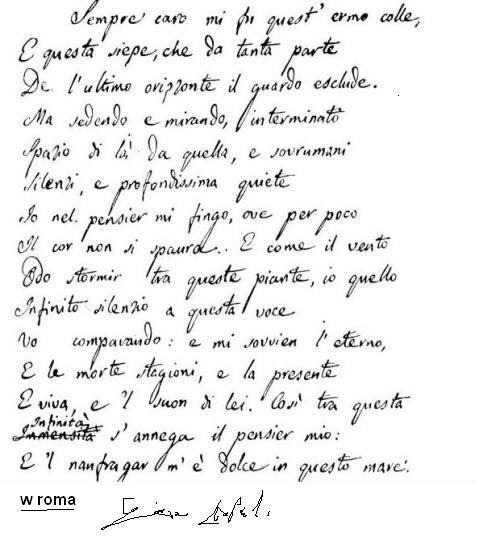 Sempre caro mi fu quest' ermo colle,
E questa siepe, che da tanta parte
De l'ultimo orizzonte il guardo esclude.
Ma sedendo e mirando, interminato
Spazio di là da quella, e sovrumani
Silenzi, e profondissima quiete
Io nel pensier mi fingo, ove per poco
Il cor non si spaura.. E come il vento
Odo stormir tra queste piante, io quello
Infinito silenzio a questa voce
Vo comparando: e mi sovvien l'eterno,
E le morte stagioni, e la presente
E viva, e 'l suon di lei. Così tra questa
Infinità
Immensità s'annega il pensier mio:
E 'l naufragar m'è dolce in questo mare.
w roma